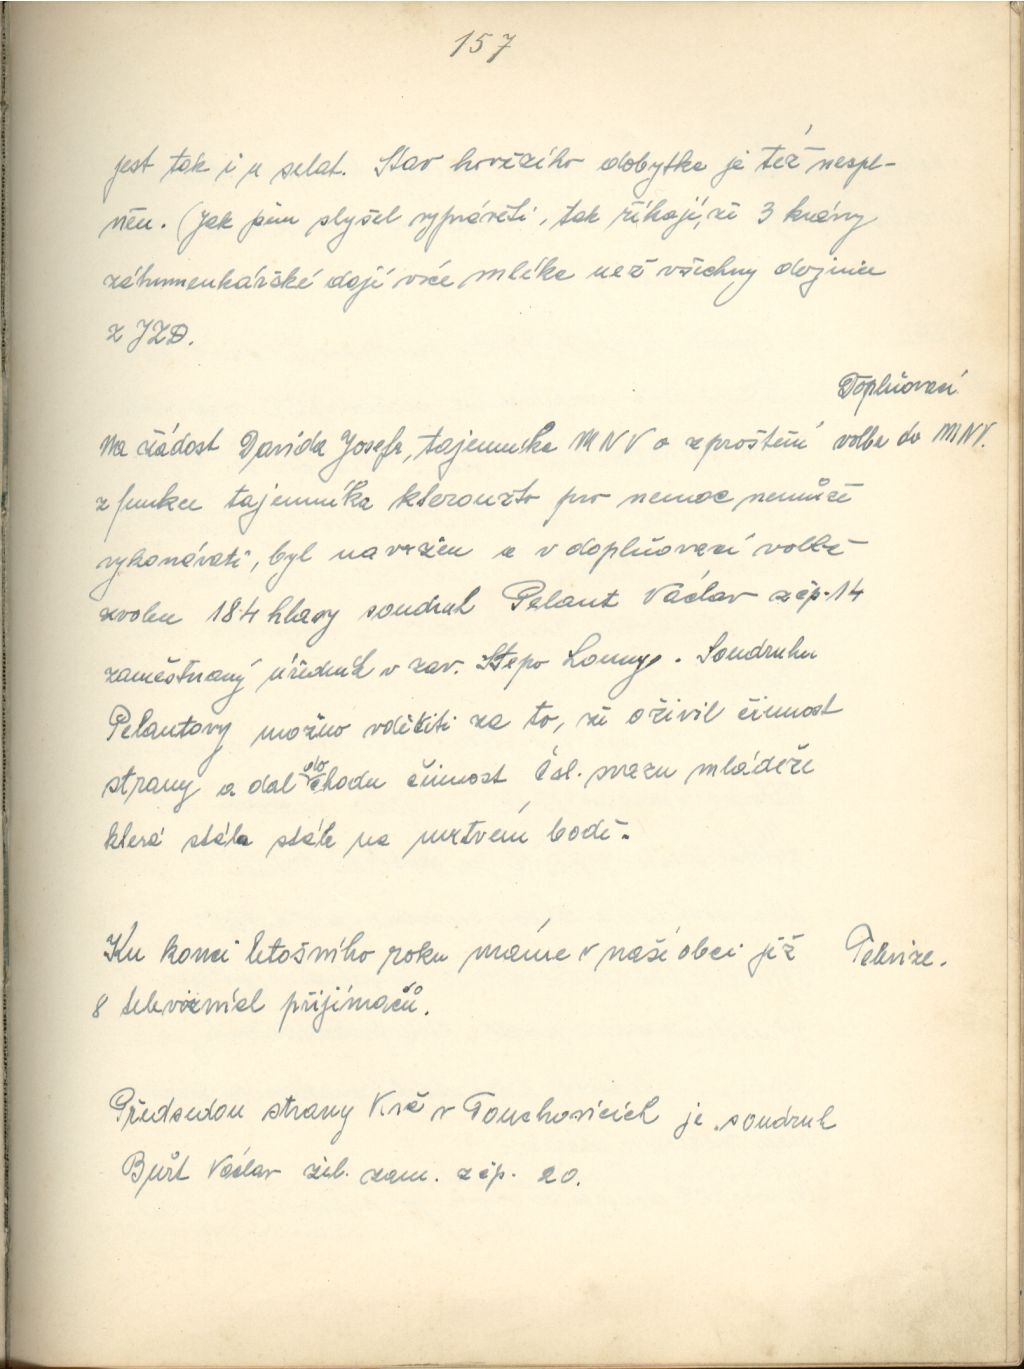 157
jest tak i u selat. Stav hovězího dobytka je též nespl-
něn. (Jak jsem slyšel vyprávěti, tak říkají, že 3 krávy
záhumenkářské dají více mléka než všechny dojnice
z JZD.
Doplňovací
Na žádost Davida Josefa, tajemníka MNV o zproštění volba do MNV.
z funkce tajemníka kteroužto pro nemoc nemůže
vykonávati, byl navržen a v doplňovací volbě
zvolen 184 hlasy soudruh Pelant Václav zčp. 14
zaměstnaný úředník v zav. Stepo Louny. Soudruhu
Pelantovy možno vděčiti za to, že oživil činnost
strany a dal do chodu činnost Čsl. svazu mládeže
která stála stále na mrtvém bodě.
Ku konci letošního roku máme v naší obci již Televize.
8 televizních přijímačů.
Předsedou strany Ksč v Touchovicích je soudruh
Buřt Václav žel. zam. zčp. 20.